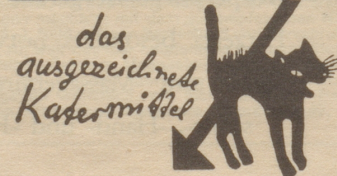 das
ausgezeichnete
Katermittel